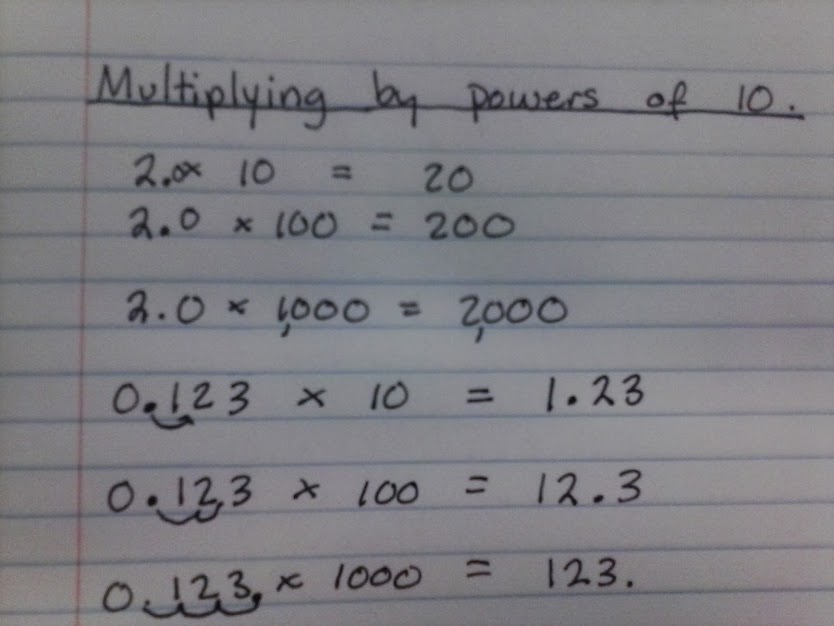 Multiplying by powers of 10.
2.0x 10 = 20
2.0 x 100 = 200
2.0 x 1,000 = 2,000
0.123 x 10 = 1.23
0.123 x 100 = 12.3
0.123. x 1000 = 123.